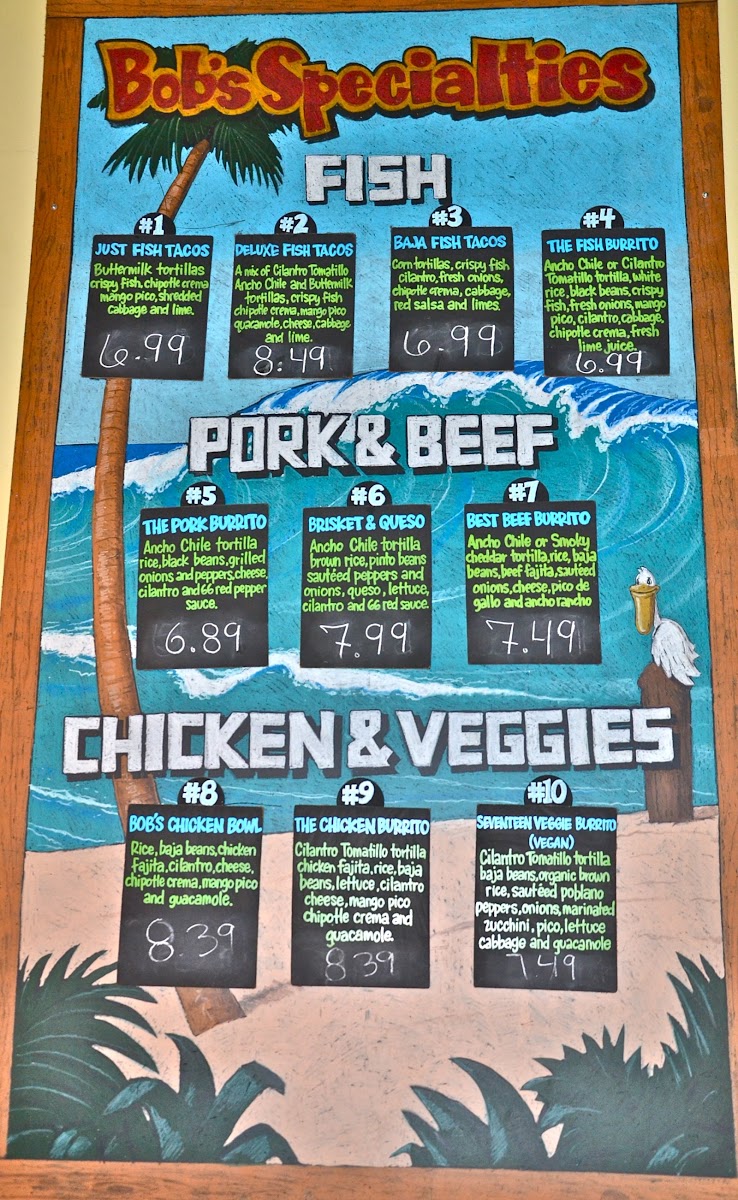 Bob's Specialties
FISH
#1
JUST FISH TACOS
Buttermilk tortillas
crispy fish, chipotle crema
mango pico, shredded
cabbage and lime.
6.99
#2
DELUXE FISH TACOS
A mix of Cilantro Tomatillo
Ancho Chile and Buttermilk
tortillas, crispy fish
chipotle crema, mango pico
guacamole, cheese, cabbage
and lime.
8.49
#3
BAJA FISH TACOS
Corn tortillas, crispy fish
cilantro, fresh onions,
chipotle crema, cabbage,
red salsa and limes.
6.99
#4
THE FISH BURRITO
Ancho Chile or Cilantro
Tomatillo tortilla, white
rice, black beans, crispy
fish, fresh onions, mango
pico, cilantro, cabbage,
chipotle crema, fresh
lime juice.
6.99
PORK & BEEF
#5
THE PORK BURRITO
Ancho Chile tortilla
rice, black beans, grilled
onions and peppers, cheese,
cilantro and GG red pepper
sauce.
6.89
#6
BRISKET & QUESO
Ancho Chile tortilla
brown rice, pinto beans
sautéed peppers and
onions, queso, lettuce,
cilantro and GG red sauce.
7.99
#7
BEST BEEF BURRITO
Ancho Chile or Smoky
cheddar tortilla, rice, baja
beans, beef fajita, sautéed
onions, cheese, pico de
gallo and ancho rancho
7.49
CHICKEN & VEGGIES
#8
BOB'S CHICKEN BOWL
Rice, baja beans, chicken
fajita, cilantro, cheese,
chipotle crema, mango pico
and guacamole.
8.39
#9
THE CHICKEN BURRITO
Cilantro Tomatillo tortilla
chicken fajita, rice, baja
beans, lettuce, cilantro
cheese, mango pico
chipotle crema and
guacamole.
8.39
#10
SEVENTEEN VEGGIE BURRITO
(VEGAN)
Cilantro Tomatillo tortilla
baja beans, organic brown
rice, sautéed poblano
peppers, onions, marinated
zucchini, pico, lettuce
cabbage and guacamole
7.49